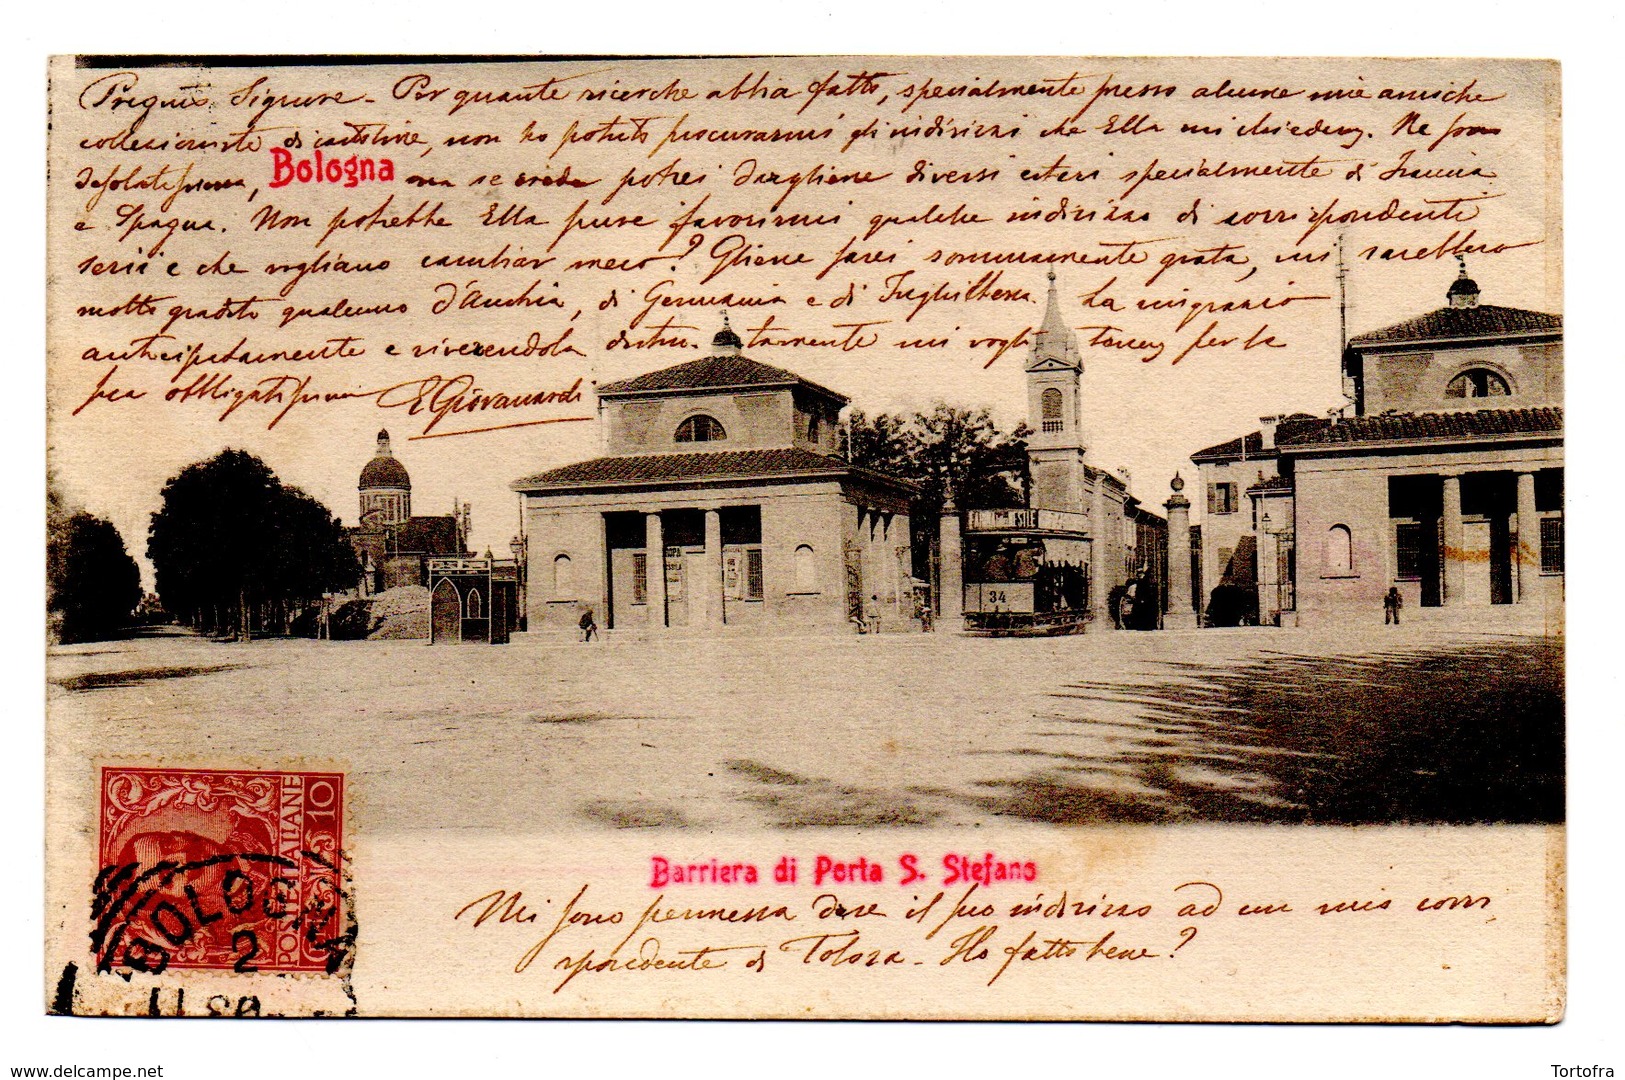 Pregmo Signore - Per quante ricerche abbia fatto, specialmente presso alcune mie amiche
collezioniste di cartoline, non ho potuto procurarmi gli indirizzi che Ella mi chiedeva. Ne sono
desolatissima,
Bologna
ma se crede potrei dargliene diversi esteri specialmente di Francia
e Spagna. Non potrebbe Ella pure favorirmi qualche indirizzo di corrispondente
serii e che vogliano cambiar meco? Gliene sarei sommamente grata, mi sarebbero
molto graditi qualcuno d'Austria, di Germania e di Inghilterra. La ringrazio
anticipatamente e riverendola distintamente mi voglia tener per la
sua obbligatissima EGiovanardi
FARINA NESTLÉ
34
10
POSTE ITALIANE
BOLOGNA
2
11 03
Barriera di Porta S. Stefano
Mi sono permessa dare il suo indirizzo ad un mio corri
spondente di Tolosa - Ho fatto bene?
www.delcampe.net
Tortofra